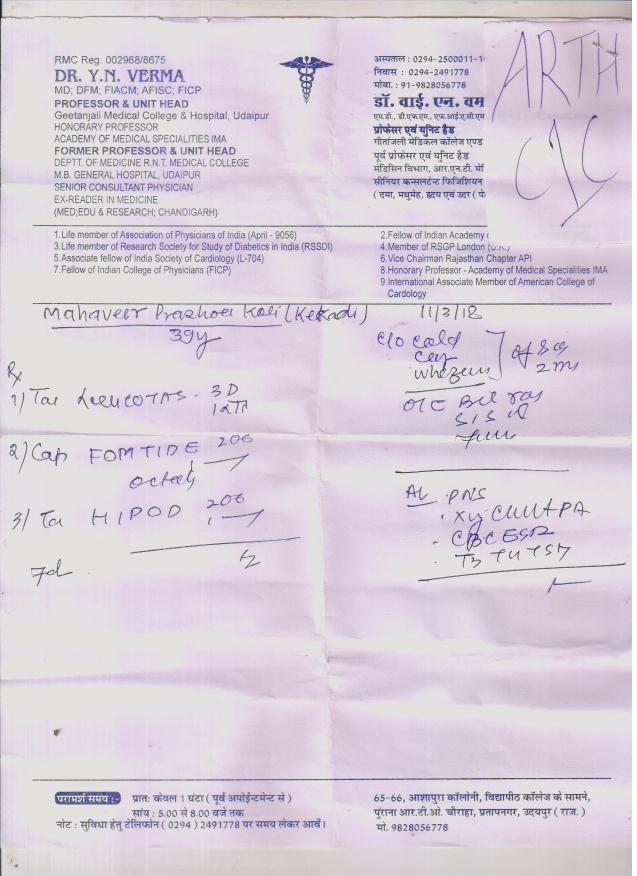 RMC Reg. 002968/8675
DR. Y.N. VERMA
MD; DFM; FIACM; AFISC; FICP
PROFESSOR & UNIT HEAD
Geetanjali Medical College & Hospital, Udaipur
HONORARY PROFESSOR
ACADEMY OF MEDICAL SPECIALITIES IMA
FORMER PROFESSOR & UNIT HEAD
DEPTT. OF MEDICINE R.N.T. MEDICAL COLLEGE
M.B. GENERAL HOSPITAL, UDAIPUR
SENIOR CONSULTANT PHYSICIAN
EX-READER IN MEDICINE
(MED;EDU & RESEARCH; CHANDIGARH)
अस्पताल : 0294-2500011-1
निवास : 0294-2491778
मोबा. : 91-9828056778
डॉ. वाई. एन. वम
एम.डी., डी.एफ.एम., एफ.आई.ए.सी.एम
प्रोफेसर एवं यूनिट हैड
गीतांजली मेडिकल कॉलेज एण्ड
पूर्व प्रोफेसर एवं यूनिट हैड
मेडिसिन विभाग, आर.एन.टी. मे
सीनियर कन्सलटेन्ट फिजिशियन
( दमा, मधुमेह, हृदय एवं उदर
ARTH
1.Life member of Association of Physicians of India (April - 9056)
3.Life member of Research Society for Study of Diabetics in India (RSSDI)
5.Associate fellow of India Society of Cardiology (L-704)
7.Fellow of Indian College of Physicians (FICP)
2.Fellow of Indian Academy
4.Member of RSGP London (U.K.)
6.Vice Chairman Rajasthan Chapter API
8.Honorary Professor - Academy of Medical Specialities IMA
9.International Associate Member of American College of
Cardiology
Mahaveer Koli (Kekadi) 11/3/18
39y
C/O Cold
Rx
1)
3D
2) Cap FOMTIDE 200
3) HIPOD 200
7d
PNS
CBC ESR
T3 T4 TSH
परामर्श समय :- प्रातः केवल 1 घंटा ( पूर्व अपोईन्टमेन्ट से )
सांय : 5.00 से 8.00 बजे तक
नोट : सुविधा हेतु टेलिफोन ( 0294 ) 2491778 पर समय लेकर आवें।
65-66, आशापुरा कॉलोनी, विद्यापीठ कॉलेज के सामने,
पुराना आर.टी.ओ. चौराहा, प्रतापनगर, उदयपुर ( राज. )
मो. 9828056778